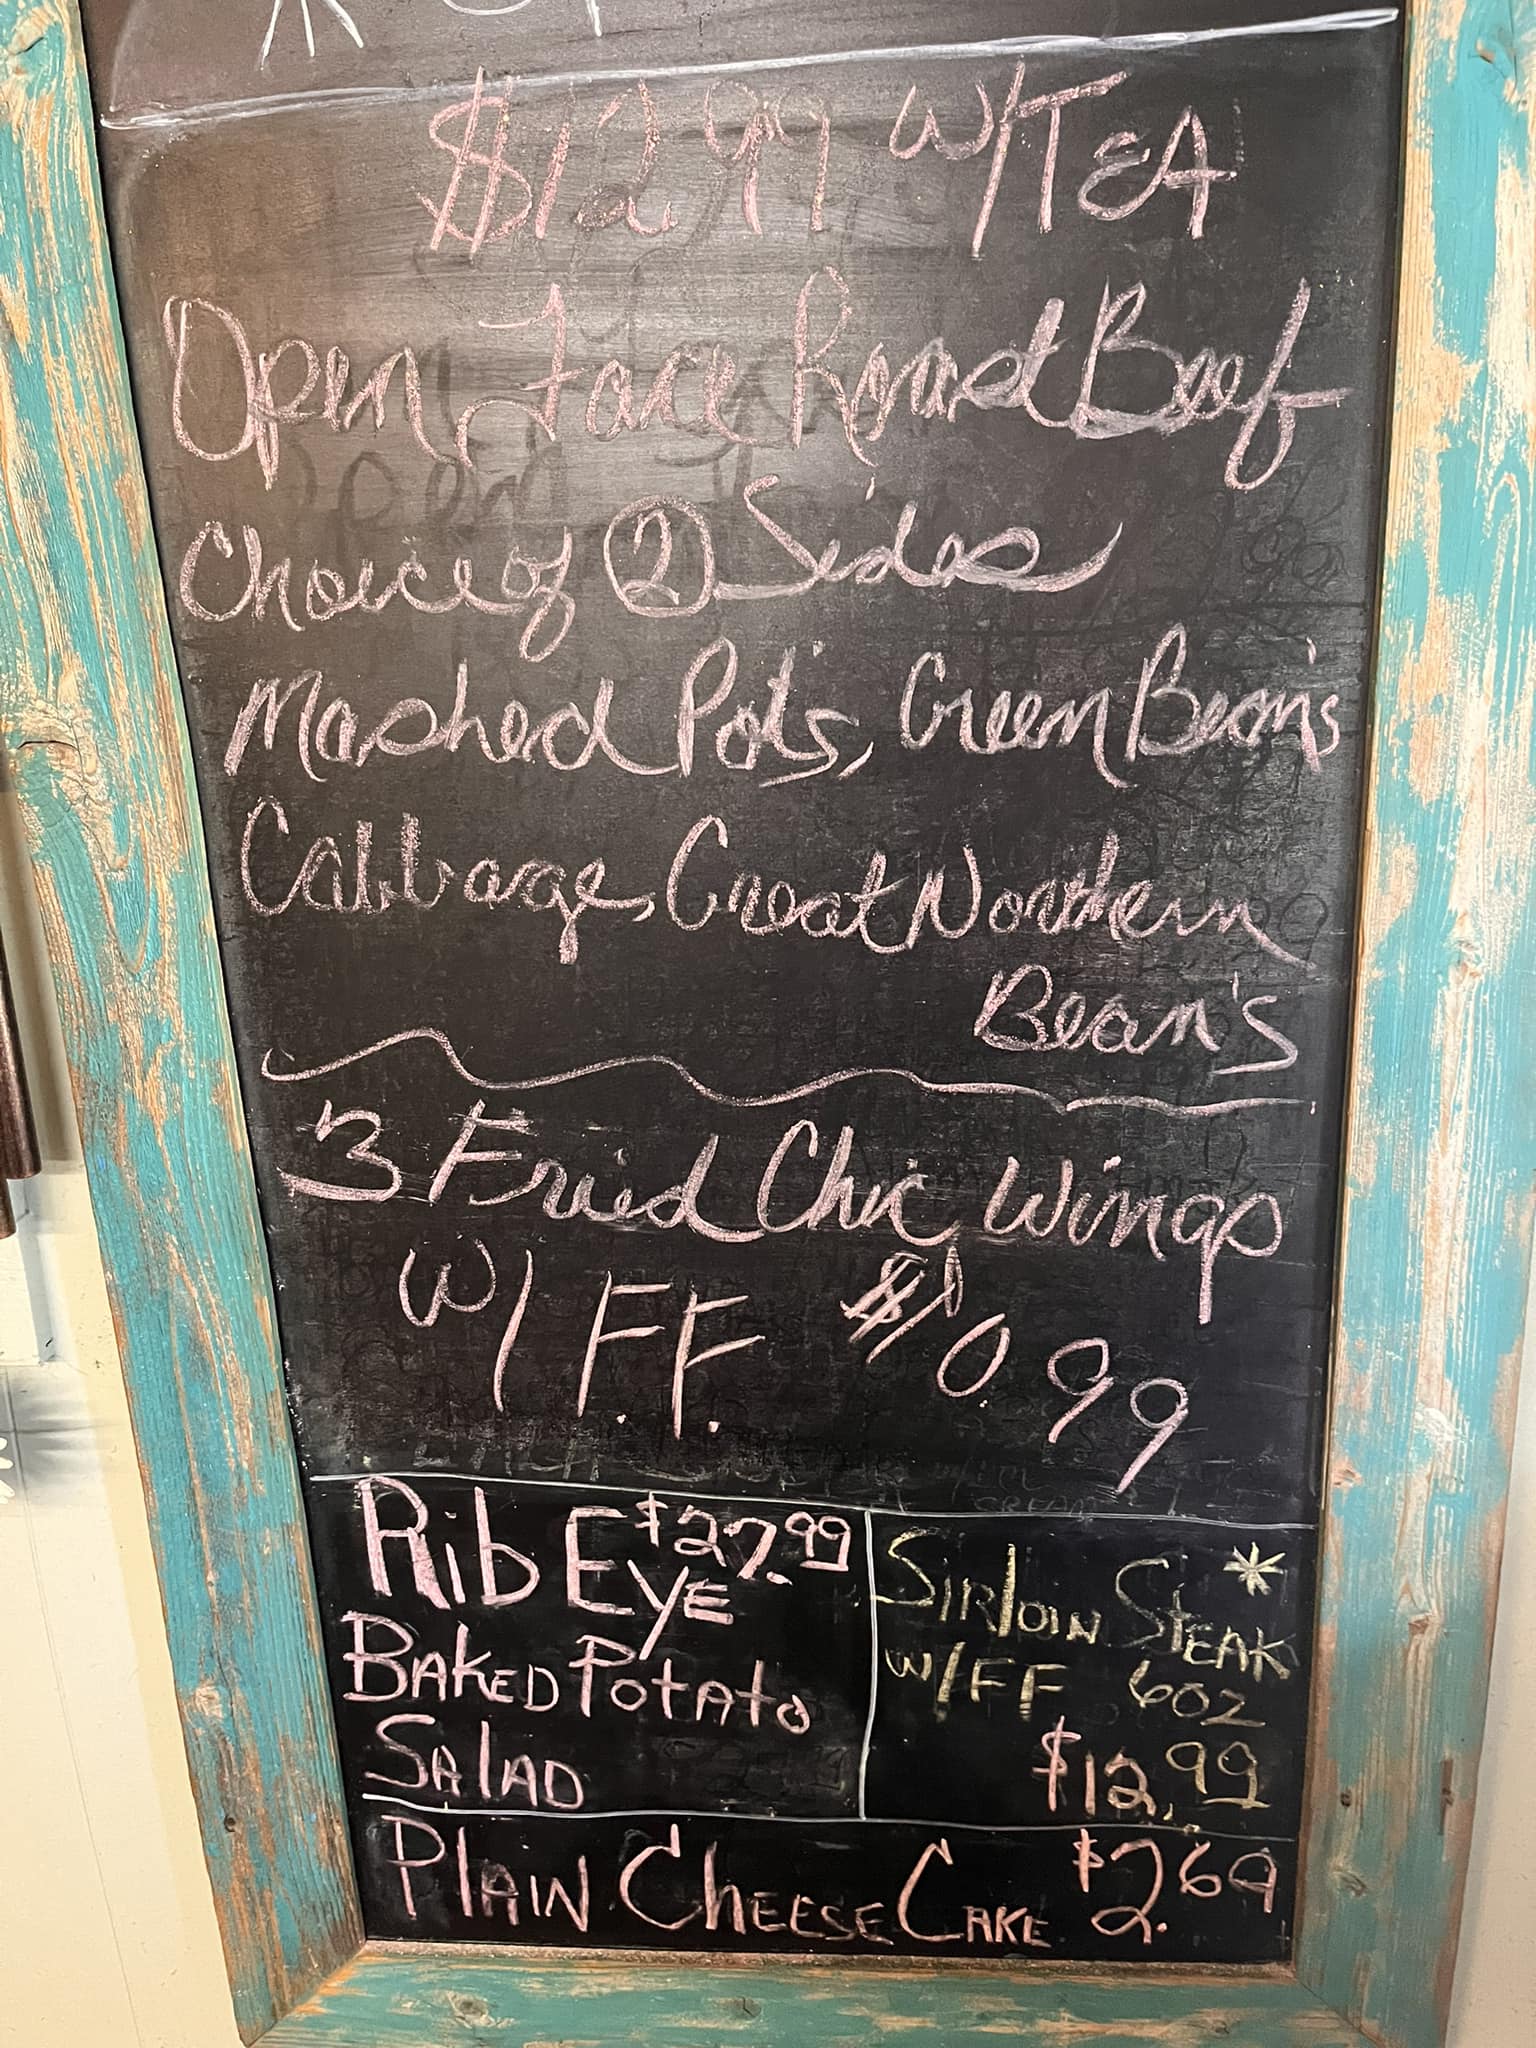 $12.99 W/TEA
Open Face Roast Beef
Choice of 2 Sides
Mashed Pot's, Green Bean's
Cabbage, Great Northern
Bean's
3 Fried Chic Wings
W/F.F. $10.99
Rib Eye $27.99
Baked Potato
Salad
Sirloin Steak *
W/FF 6oz
$12.99
Plain Cheese Cake $2.69